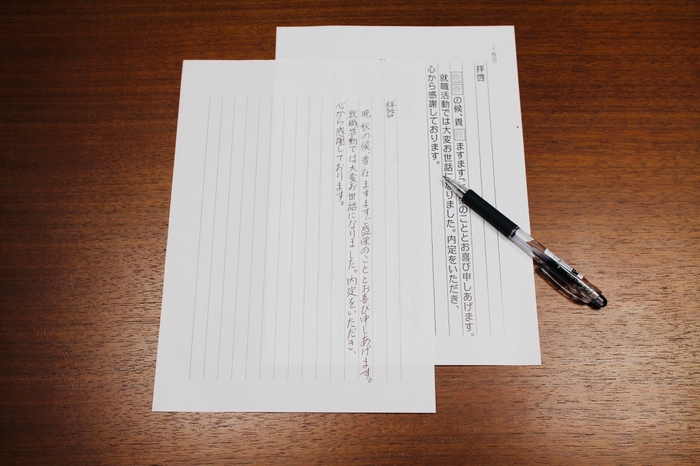 拝啓
の候、貴 ますますご のこととお喜び申しあげます。
就職活動では大変お世話になりました。内定をいただき、
心から感謝しております。
拝啓
晩秋の候、貴社ますますご盛栄のこととお喜び申しあげます。
就職活動では大変お世話になりました。内定をいただき、
心から感謝しております。